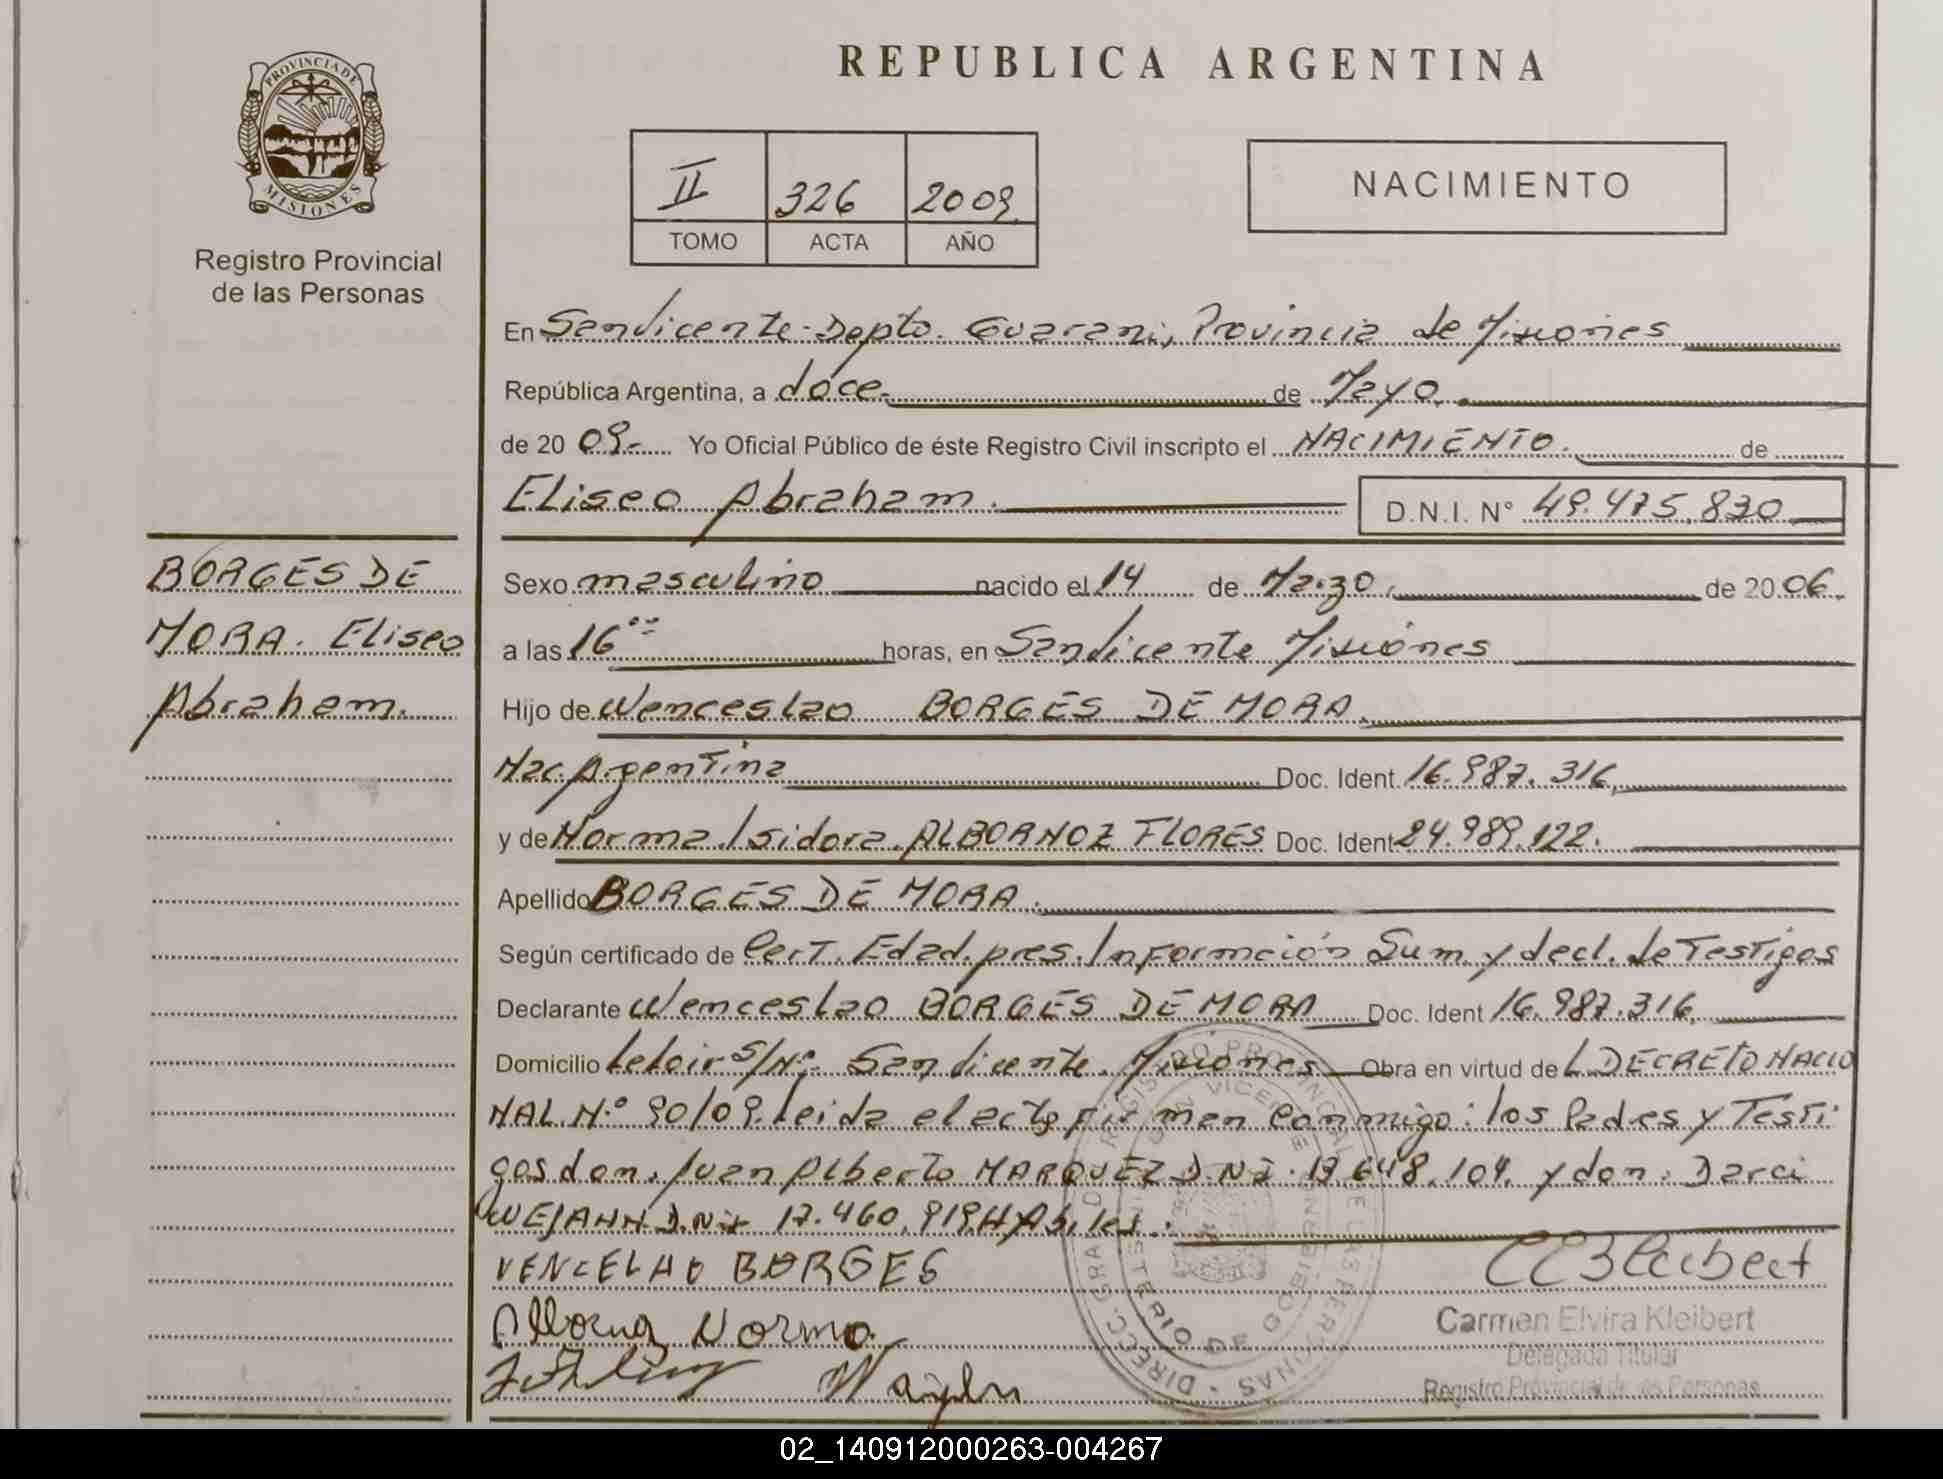 PROVINCIA DE
MISIONES
Registro Provincial
de las Personas
REPUBLICA ARGENTINA
II 326 2009
TOMO ACTA AÑO
NACIMIENTO
En San Vicente - Depto. Guarani, Provincia de Misiones
República Argentina, a doce. de Mayo.
de 20 09.- Yo Oficial Público de éste Registro Civil inscripto el NACIMIENTO. de
Eliseo Abraham. D.N.I. N° 49.475.830
BORGES DE
MORA. Eliseo
Abraham.
Sexo masculino nacido el 14 de Marzo. de 20 06.
a las 16 horas, en San Vicente Misiones
Hijo de Wenceslao BORGES DE MORA.
Nac. Argentina Doc. Ident. 16.987.316,
y de Norma Isidora. ALBORNOZ FLORES Doc. Ident 24.989.122.
Apellido BORGES DE MORA.
Según certificado de Cert. Edad. pres. Información Sum. y decl. de Testigos
Declarante Wenceslao BORGES DE MORA Doc. Ident 16.987.316,
Domicilio Leloir S/Nº- San Vicente. Misiones Obra en virtud de L DECRETO NACIO
NAL. N.º 90/09. Leida el acta firman conmigo: los Padres y Testi-
gos don. Juan Alberto MARQUEZ D.N.I. 13.648.104. y don: Darci
WEJAHN D.N.I. 17.460.919. HAbiles.
VENCELAO BORGES
Norma
Carmen Elvira Kleibert
Delegada Titular
Registro Provincial de las Personas
02_140912000263-004267